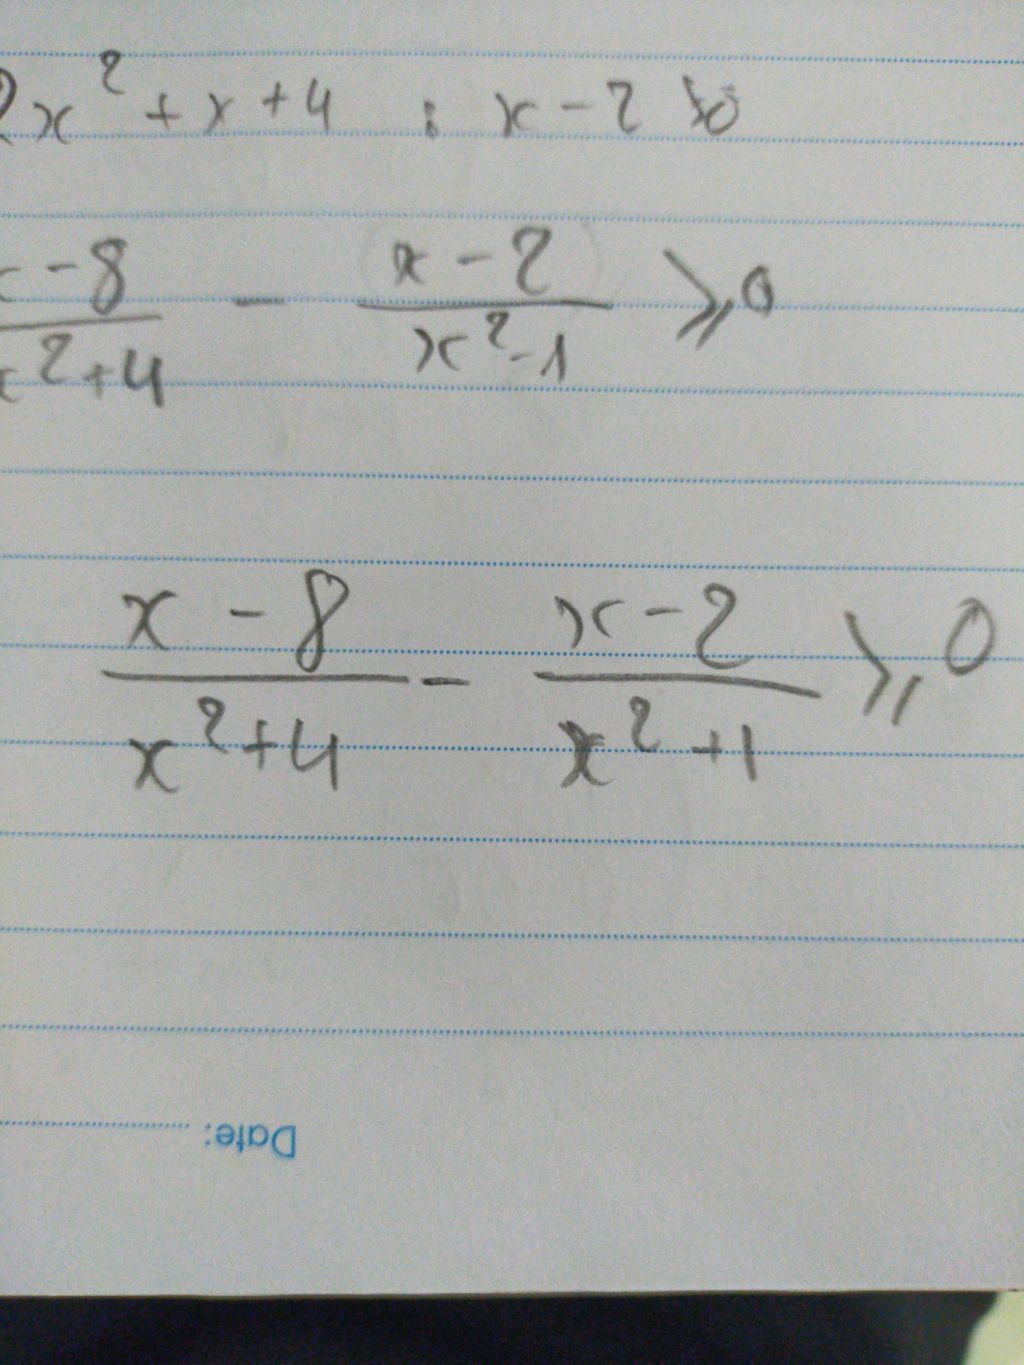 2x² + x + 4 : x - 2 ≥ 0
x - 8 / x² + 4 - x - 2 / x² - 1 ≥ 0
x - 8 / x² + 4 - x - 2 / x² + 1 ≥ 0
Date: